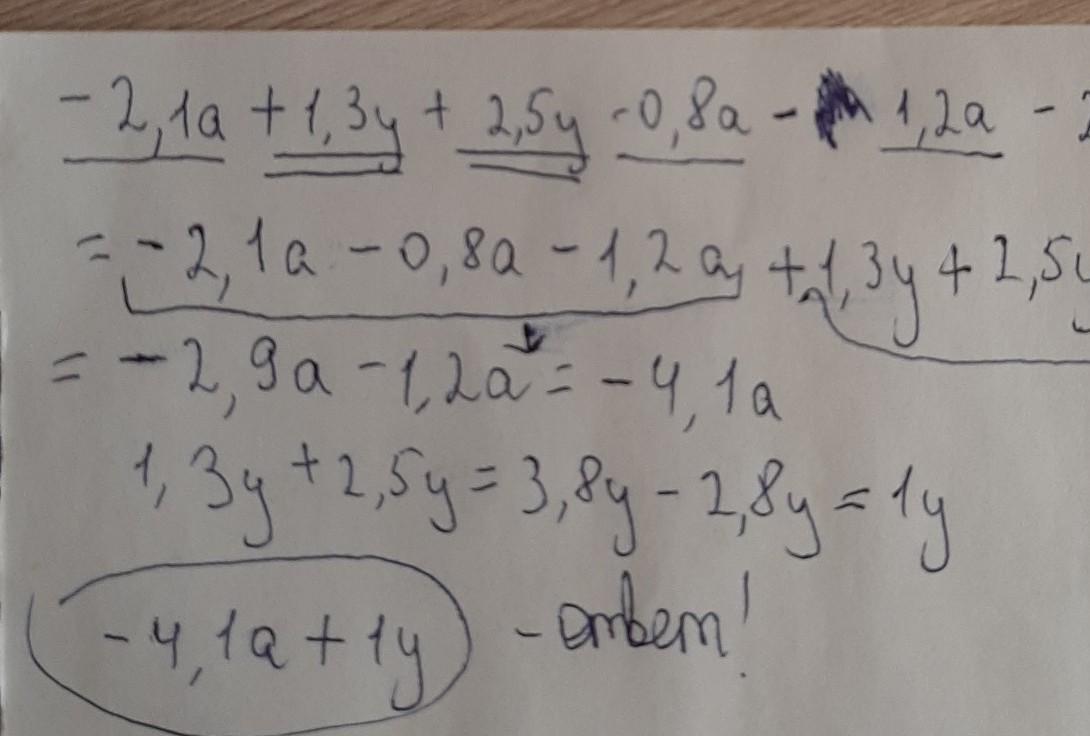 -2,1a + 1,3y + 2,5y - 0,8a - 1,2a -
= -2,1a - 0,8a - 1,2a + 1,3y + 2,5y
= -2,9a - 1,2a = -4,1a
1,3y + 2,5y = 3,8y - 2,8y = 1y
-4,1a + 1y - ответ!